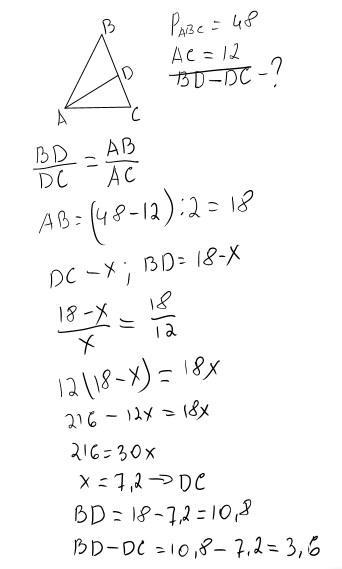 B
D
A
C
P_ABC = 48
AC = 12
BD-DC-?
BD/DC = AB/AC
AB=(48-12):2=18
DC-x; BD=18-x
18-x/x = 18/12
12(18-x)=18x
216-12x=18x
216=30x
x=7,2→DC
BD=18-7,2=10,8
BD-DC=10,8-7,2=3,6